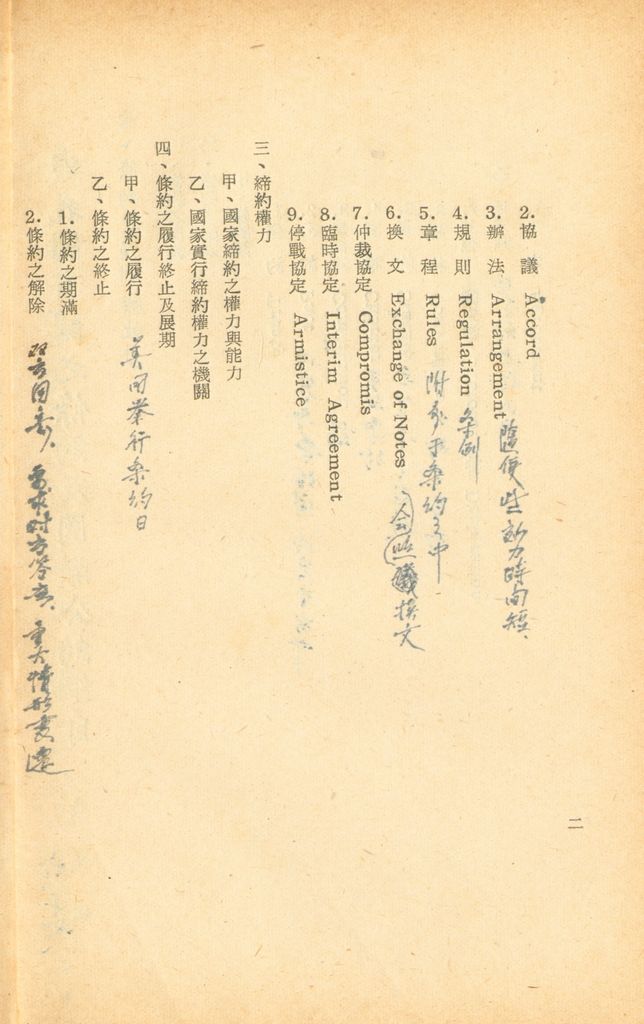 二
2. 協議 Accord
3. 辦法 Arrangement 隨便些効力時間短、
4. 規則 Regulation 条例
5. 章程 Rules 附於条約之中
6. 換文 Exchange of Notes 会照 換文
7. 仲裁協定 Compromis
8. 臨時協定 Interim Agreement
9. 停戰協定 Armistice
三、締約權力
甲、國家締約之權力與能力
乙、國家實行締約權力之機關
四、條約之履行終止及展期
甲、條約之履行 美国举行条約日
乙、條約之終止
1. 條約之期滿
2. 條約之解除 双方同意、要求对方答應、重大情形变遷